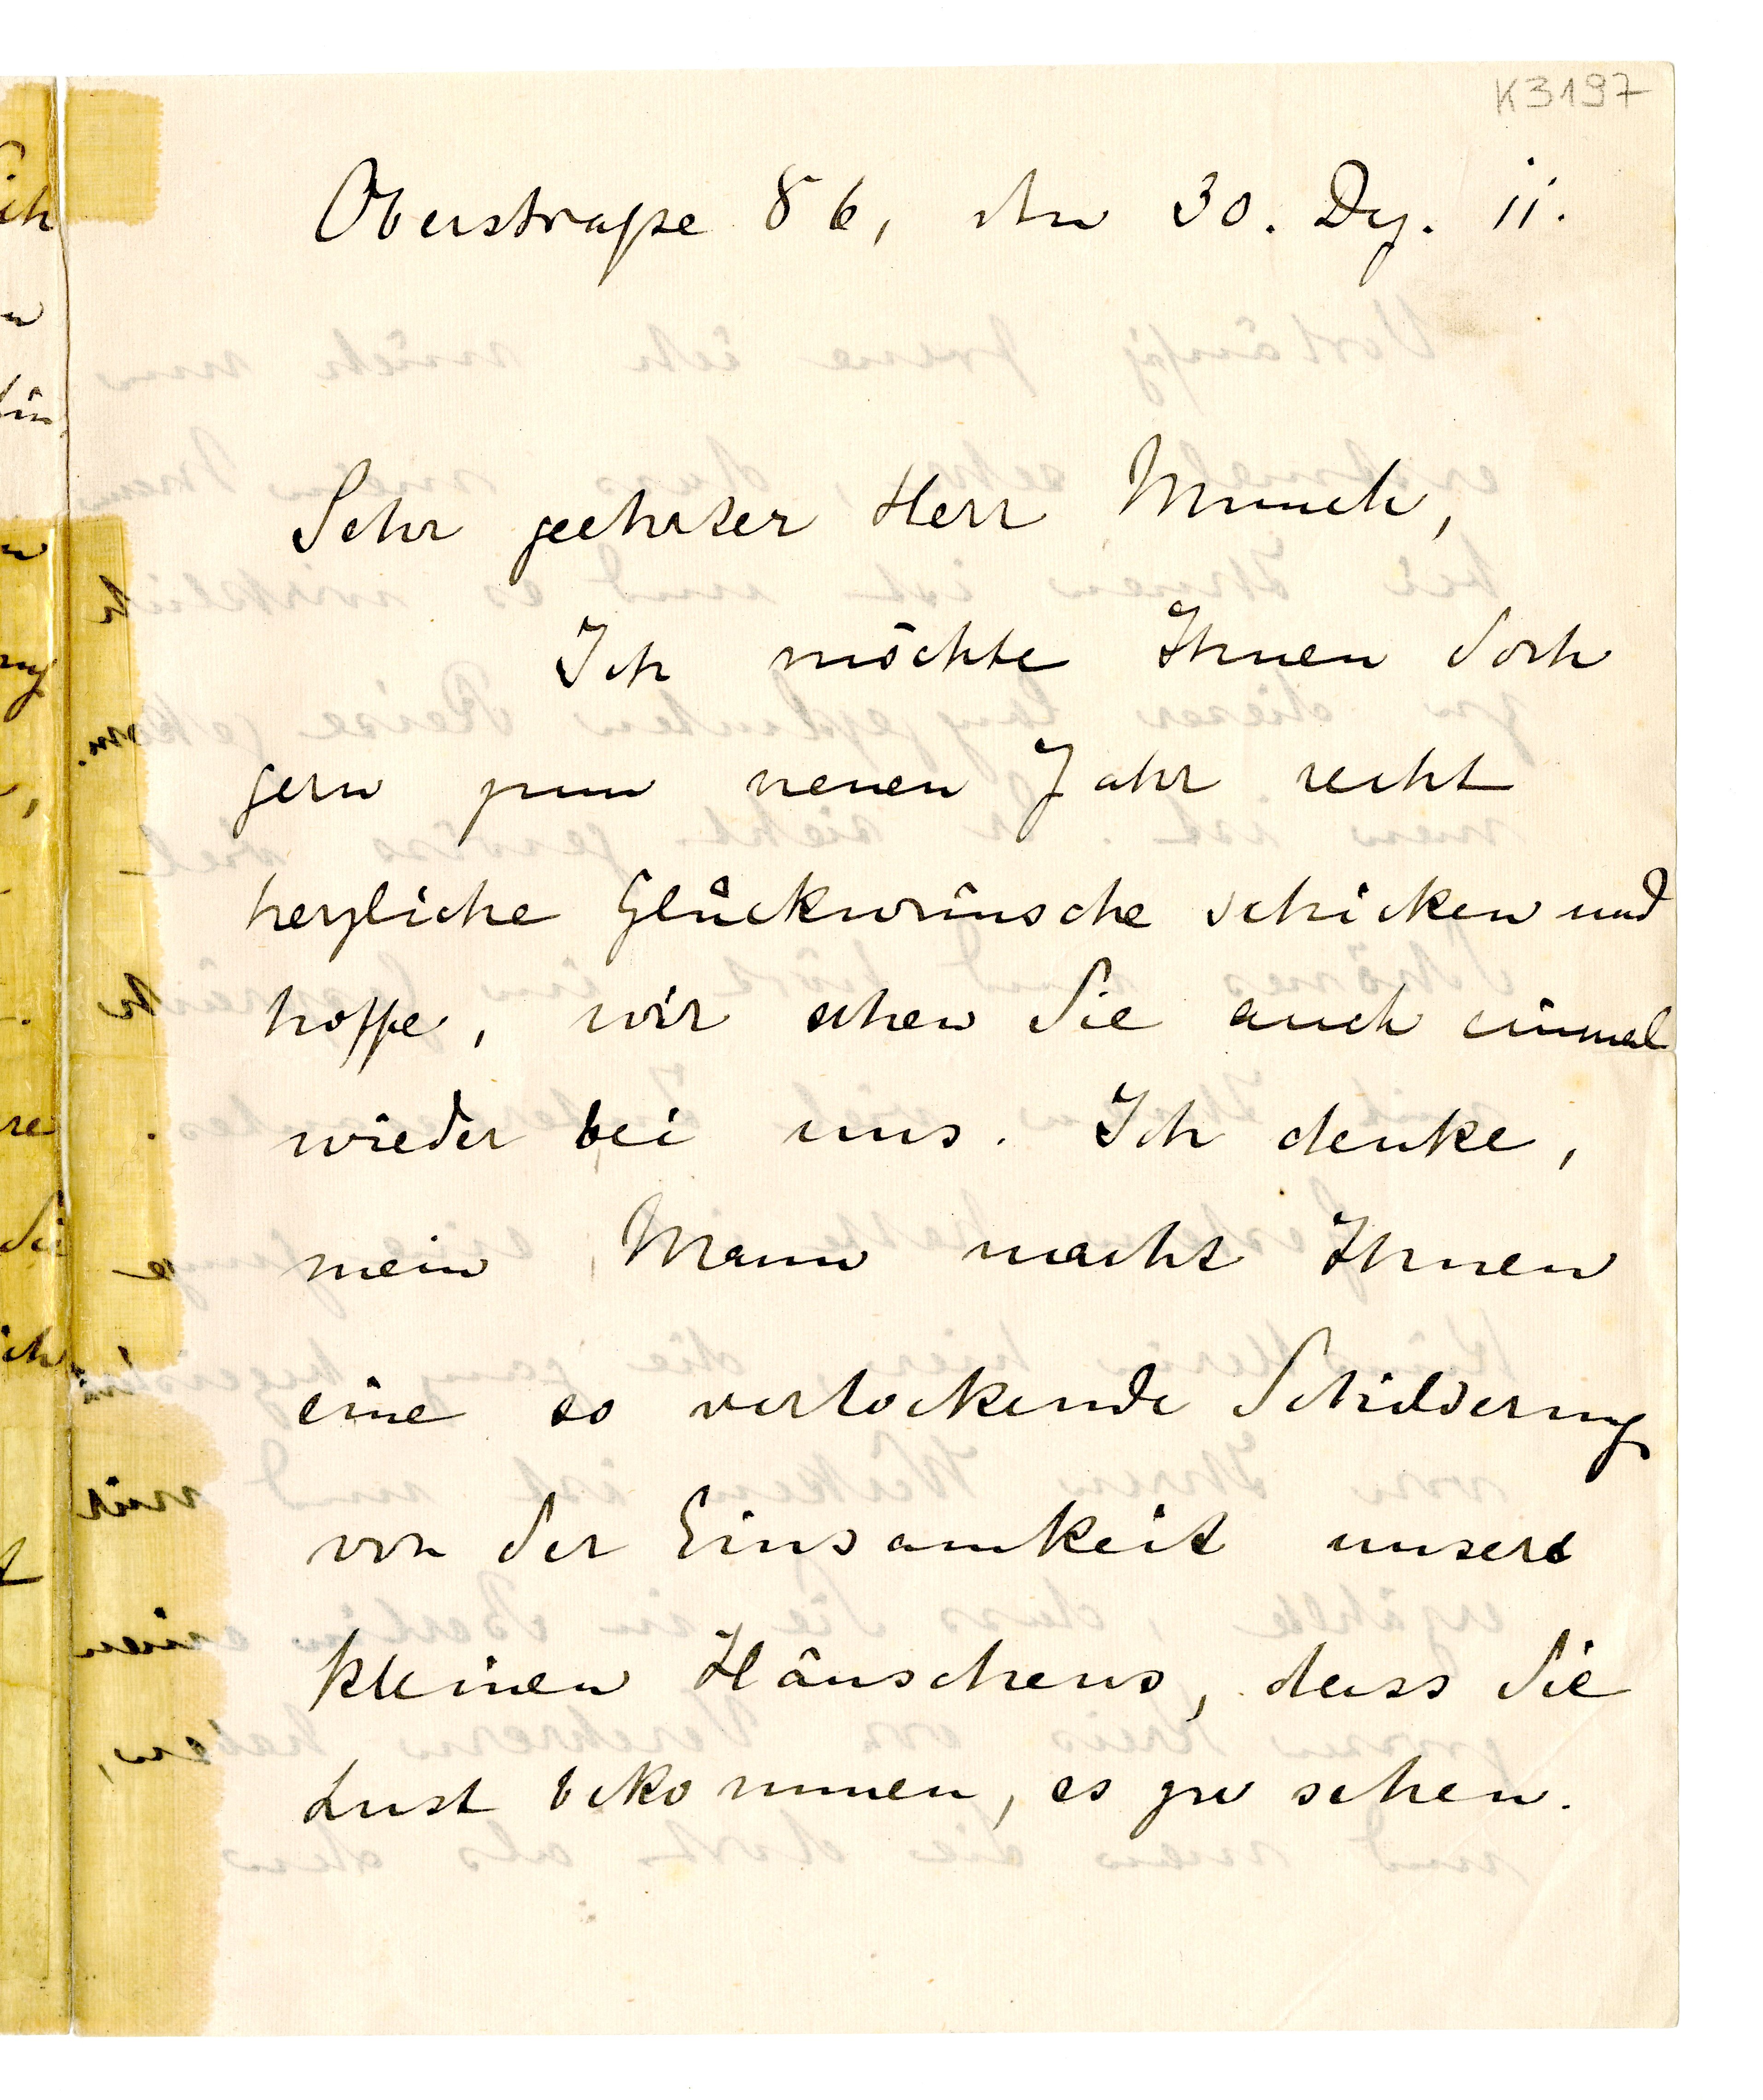 K3197
Oberstraße 86, den 30. Dez. 11.
Sehr geehrter Herr Munch,
Ich möchte Ihnen doch
gern zum neuen Jahr recht
herzliche Glückwünsche schicken und
hoffe, wir sehen Sie auch einmal
wieder bei uns. Ich denke,
mein Mann macht Ihnen
eine so verlockende Schilderung
von der Einsamkeit unseres
kleinen Häuschens, dass Sie
Lust bekommen, es zu sehen.